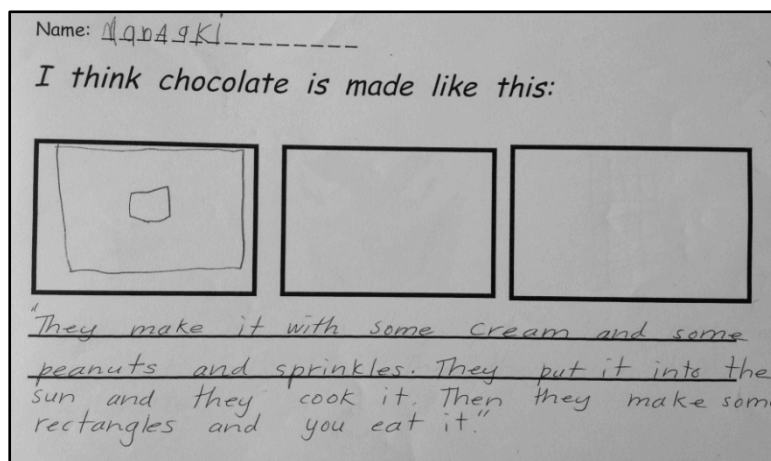 Name: NanAgKi
I think chocolate is made like this:
"They make it with some cream and some
peanuts and sprinkles. They put it into the
sun and they cook it. Then they make some
rectangles and you eat it."